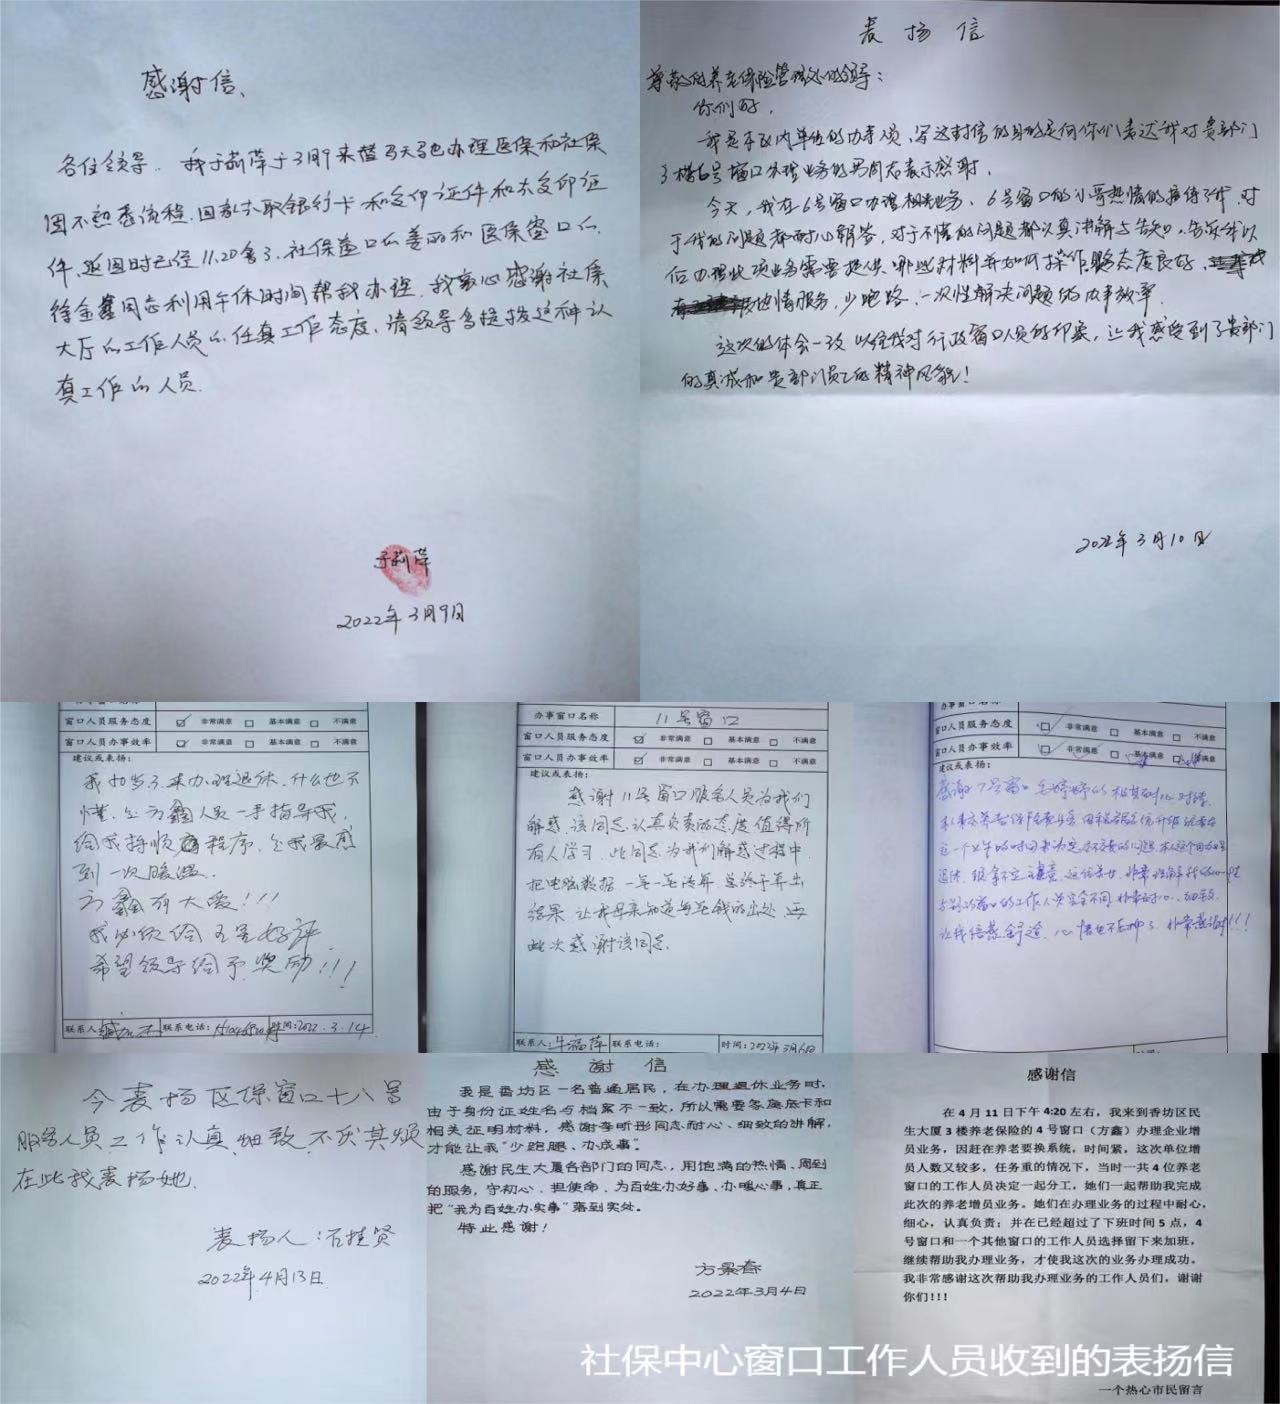 感谢信、
各位领导. 我于莉萍于3月9来替马天驰办理医保和社保
因不熟悉流程.因起大取银行卡和复印证件和去复印证
件.返回时已经11.20多了.社保窗口的姜丽和医保窗口的
徐金鑫同志利用午休时间帮我办理.我衷心感谢社保
大厅的工作人员的任真工作态度.请领导多提拨这种认
真工作的人员.
于莉萍
2022年3月9日
表扬信
尊敬的养老保险管理处的领导:
你们好,
我是本区内单位的办事人员,写这封信的目的是向你们表达我对贵部门
3楼6号窗口办理业务的男同志表示感谢.
今天,我在6号窗口办理相关业务、6号窗口的小哥热情的接待了我,对
于我的问题都耐心解答,对于不懂的问题都认真讲解与告知.告诉我以
后办理此项业务需要提供哪些材料并如何操作.服务态度良好、
热情服务,少跑路、一次性解决问题的办事效率.
这次的体会一改以往我对行政窗口人员的印象,让我感受到了贵部门
的真诚和贵部门员工的精神风貌!
2022年3月10日
窗口人员服务态度 ☑ 非常满意 □ 基本满意 □ 不满意
窗口人员办事效率 ☑ 非常满意 □ 基本满意 □ 不满意
建议或表扬:
我扔当了.来办理退休.什么也不
懂.方鑫人员一手指导我.
给我捋顺程序.令我最感
到一次暖温.
方鑫有大爱!!!
我必须给五星好评
希望领导给予奖励!!!
联系人: 联系电话: 时间:2022.3.14
办事窗口名称 11号窗口
窗口人员服务态度 ☑ 非常满意 □ 基本满意 □ 不满意
窗口人员办事效率 ☑ 非常满意 □ 基本满意 □ 不满意
建议或表扬:
感谢11号窗口服务人员为我们
解惑.该同志认真负责的态度值得所
有人学习.此同志为我们解惑过程中
把电脑数据一笔一笔清算.最终于弄出
结果.让我母亲知道每笔钱的出处.再
此次感谢该同志.
联系人:牛福萍 联系电话: 时间:2022年3月6日
窗口人员服务态度 非常满意 基本满意 不满意
窗口人员办事效率 非常满意 基本满意 不满意
建议或表扬:
感谢7号窗口毛婷婷的极其耐心对待.
让我倍感舒适.心情也不压抑了.非常感谢!!!
今表扬区保窗口十八号
服务人员工作认真.细致.不厌其烦
在此我表扬她.
表扬人:石桂贤
2022年4月13日
感谢信
我是香坊区一名普通居民,在办理退休业务时,
由于身份证姓名与档案不一致,所以需要多施底卡和
相关证明材料,感谢李昕彤同志耐心、细致的讲解,
才能让我“少跑腿、办成事”。
感谢民生大厦各部门的同志,用饱满的热情、周到
的服务,守初心、担使命、为百姓办好事、办暖心事,真正
把“我为百姓办实事”落到实处。
特此感谢!
方景春
2022年3月4日
感谢信
在4月11日下午4:20左右,我来到香坊区民
生大厦3楼养老保险的4号窗口(方鑫)办理企业增
员业务,因赶在养老要换系统,时间紧,这次单位增
员人数又较多,任务重的情况下,当时一共4位养老
窗口的工作人员决定一起分工,她们一起帮助我完成
此次的养老增员业务。她们在办理业务的过程中耐心,
细心,认真负责;并在已经超过了下班时间5点,4
号窗口和一个其他窗口的工作人员选择留下来加班,
继续帮助我办理业务,才使我这次的业务办理成功。
我非常感谢这次帮助我办理业务的工作人员们,谢谢
你们!!!
一个热心市民留言
社保中心窗口工作人员收到的表扬信